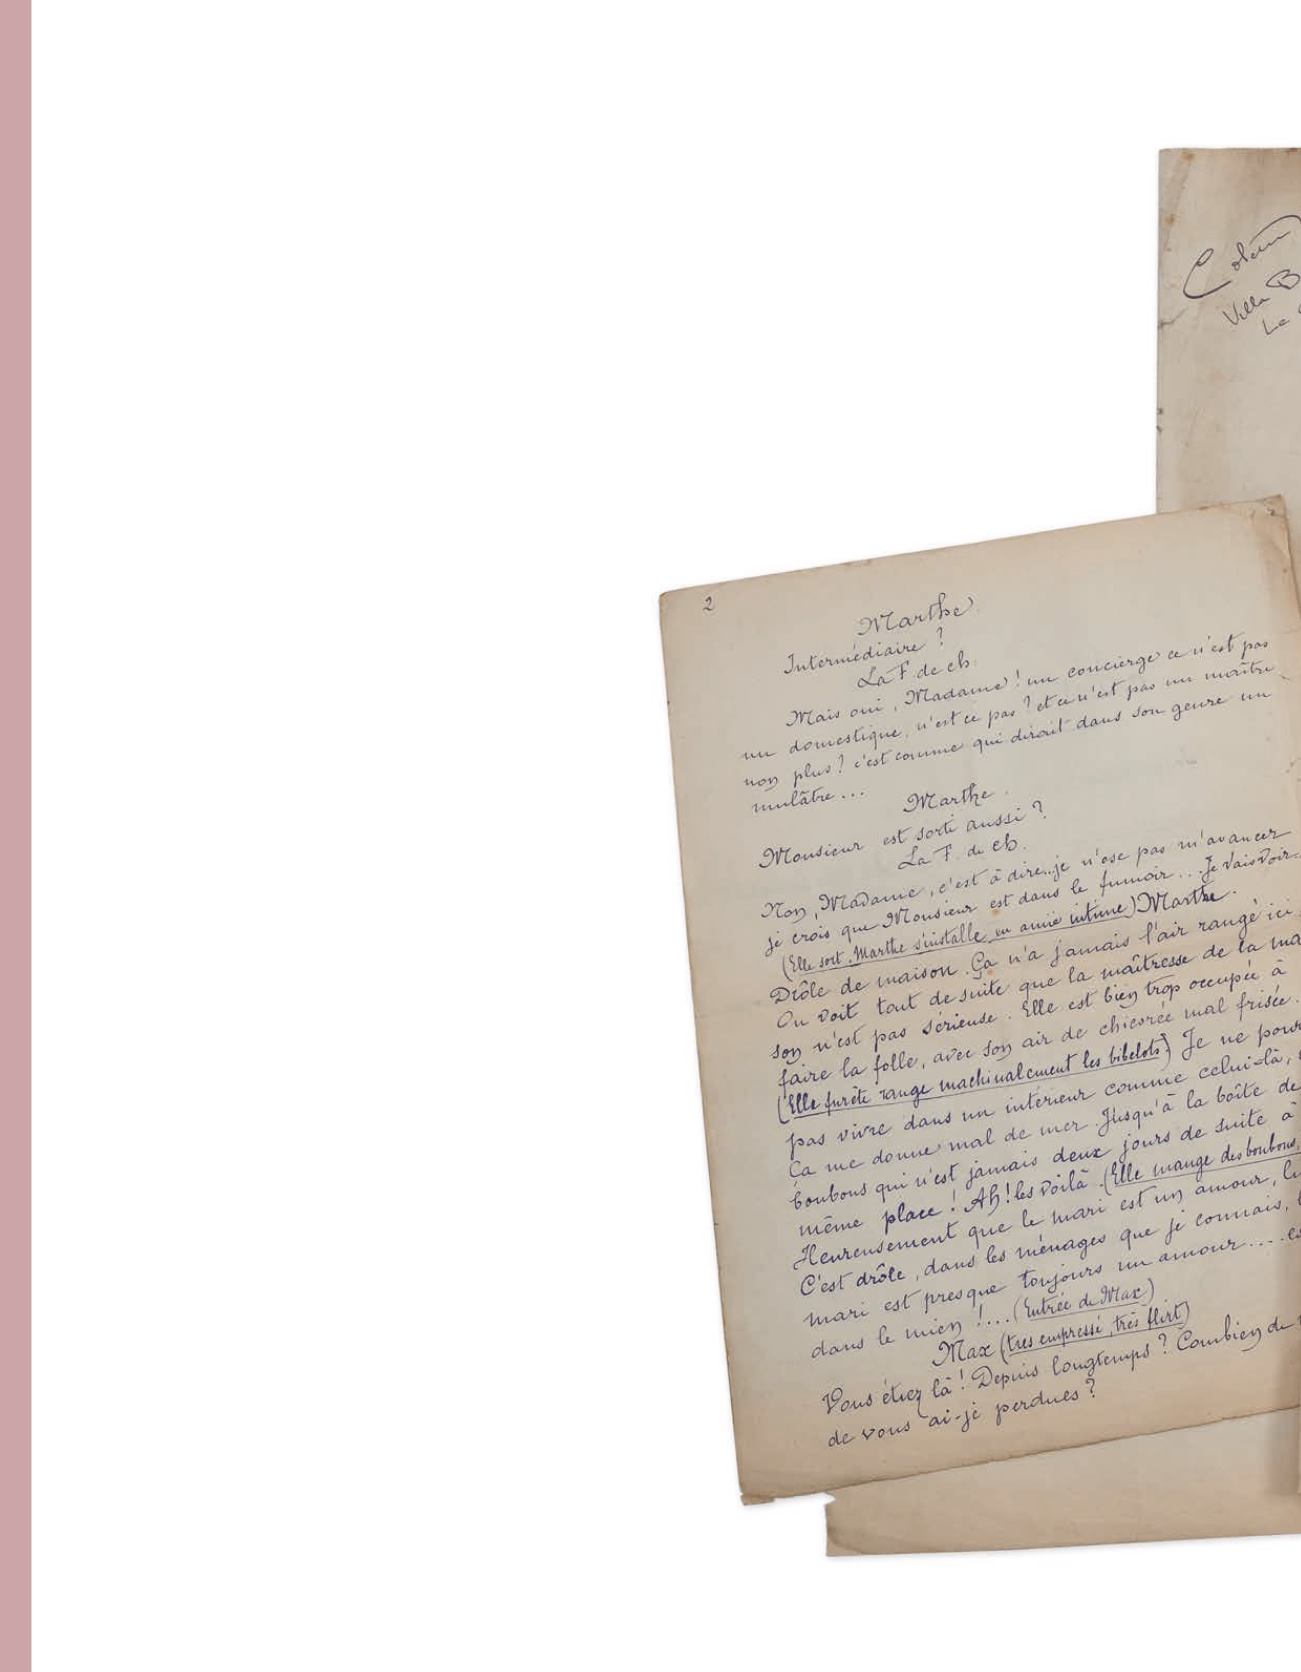 Villa B
La
2
Marthe
Intermédiaire ?
La F. de ch.
Mais oui, Madame ! un concierge ce n'est pas
un domestique, n'est ce pas ? et ce n'est pas un maître
non plus ? c'est comme qui dirait dans son genre un
mulâtre...
Marthe.
Monsieur est sorti aussi ?
La F. de ch.
Non, Madame, c'est à dire...je n'ose pas m'avancer
je crois que Monsieur est dans le fumoir... Je vais voir.
(Elle sort. Marthe s'installe en amie intime) Marthe.
Drôle de maison. Ça n'a jamais l'air rangé ici
On voit tout de suite que la maîtresse de la mai
son n'est pas sérieuse. Elle est bien trop occupée à
faire la folle, avec son air de chicorée mal frisée.
(Elle furète range machinalement les bibelots) Je ne pour
pas vivre dans un intérieur comme celui-là,
Ça me donne mal de mer. Jusqu'à la boîte de
bonbons qui n'est jamais deux jours de suite à
même place ! Ah ! les voilà. (Elle mange des bonbons,
Heureusement que le mari est un amour, lu
C'est drôle, dans les ménages que je connais, l
mari est presque toujours un amour.... es
dans le mien !... (Entrée de Max)
Max (très empressé, très flirt)
Vous étiez là ! Depuis longtemps ? Combien de
de vous ai-je perdues ?